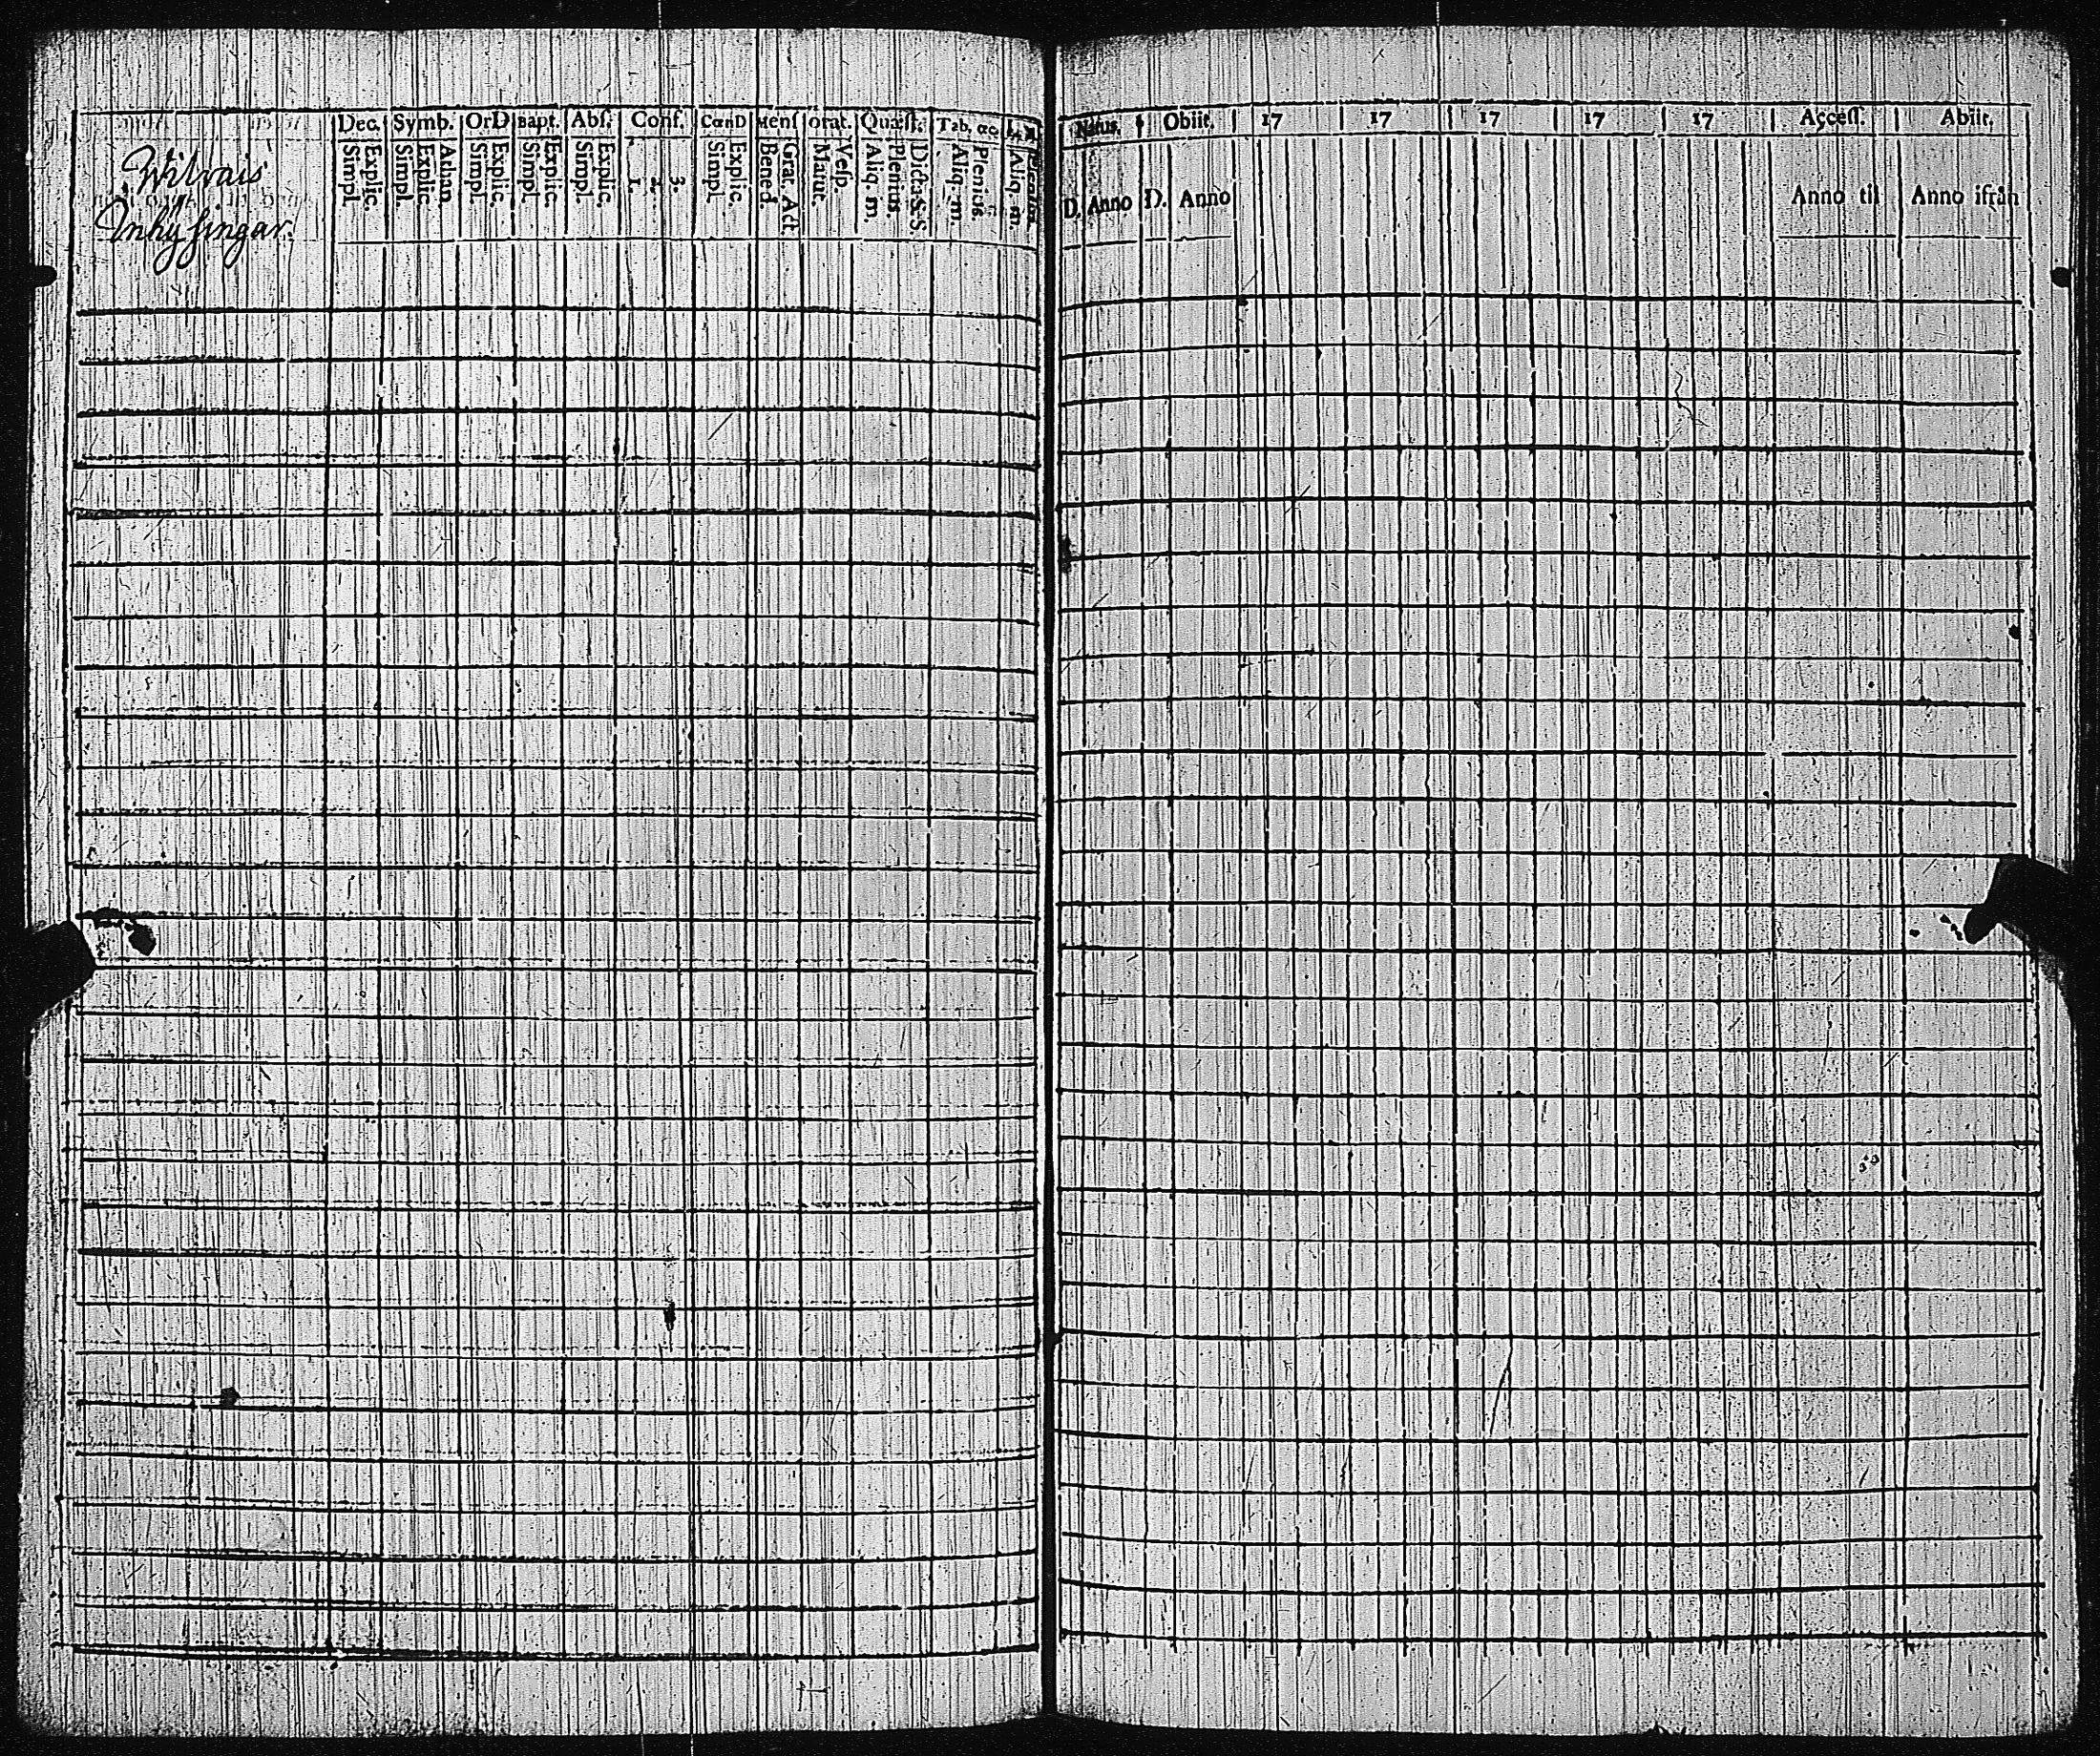 Wilvais
Inhysingar.
Dec. Symb. OrD Bapt. Abſ. Conf. CœnD Menſ orat. Quæſt. Tab. œc
Explic. Simpl. Athan Explic Simpl. Explic. Simpl. Explic Simpl. Explic. Simpl. 3. 2. 1. Explic. Simpl. Grat. Act Bened. Veſp. Matut. Dicta S. S. Plenius. Aliq. m. Plenius Aliq. m. Plenius Aliq. m.
Natus. Obiit. 17 17 17 17 17 Acceſſ. Abiit.
D. Anno D. Anno Anno til Anno ifrån